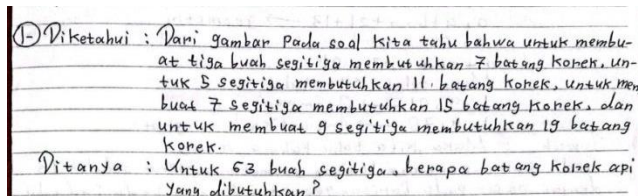 1- Diketahui : Dari gambar Pada soal kita tahu bahwa untuk membu-
at tiga buah segitiga membutuhkan 7 batang korek, un-
tuk 5 segitiga membutuhkan 11. batang korek, untuk mem
buat 7 segitiga membutuhkan 15 batang korek, dan
untuk membuat 9 segitiga membutuhkan 19 batang
korek.
Ditanya : Untuk 63 buah segitiga, berapa batang korek api
yang dibutuhkan?